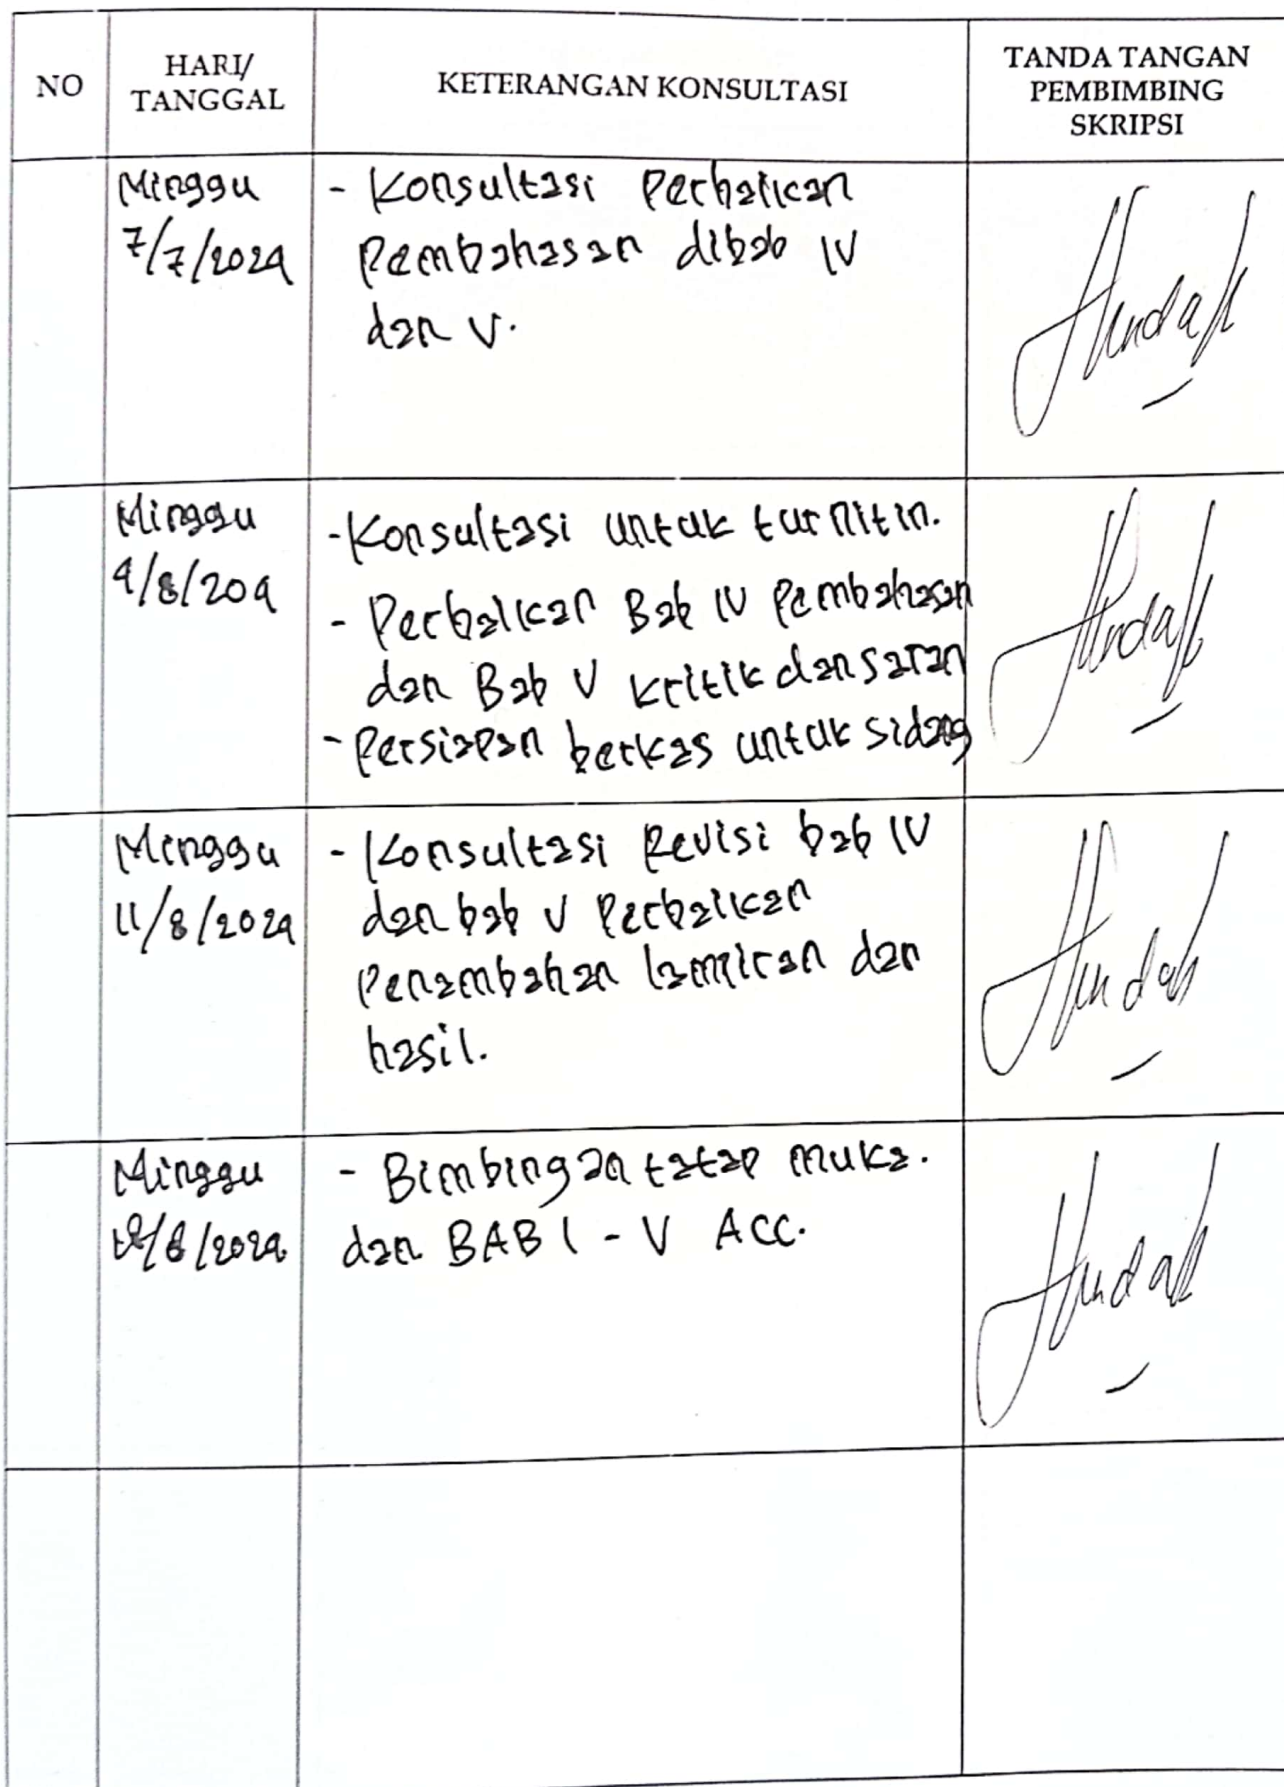 NO
HARI/
TANGGAL
KETERANGAN KONSULTASI
TANDA TANGAN
PEMBIMBING
SKRIPSI
Minggu
7/7/2024
- Konsultasi Perbaikan
Pembahasan dibab IV
dan V.
Minggu
4/8/204
- Konsultasi untuk turnitin.
- Perbaikan Bab IV Pembahasan
dan Bab V kritik dan saran
- Persiapan berkas untuk sidang
Minggu
11/8/2024
- Konsultasi Revisi bab IV
dan bab V Perbaikan
Penambahan lampiran dan
hasil.
Minggu
- Bimbingan tatap muka.
dan BAB I - V ACC.